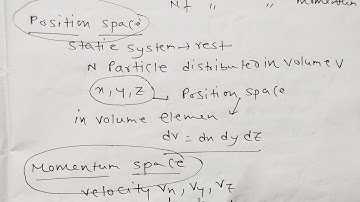 Nf " " momentum
Position space
Static system → rest
N Particle distributed in volume V
x, y, z → Position space
in volume elemen
dv = dx dy dz
Momentum space
velocity vx, vy, vz